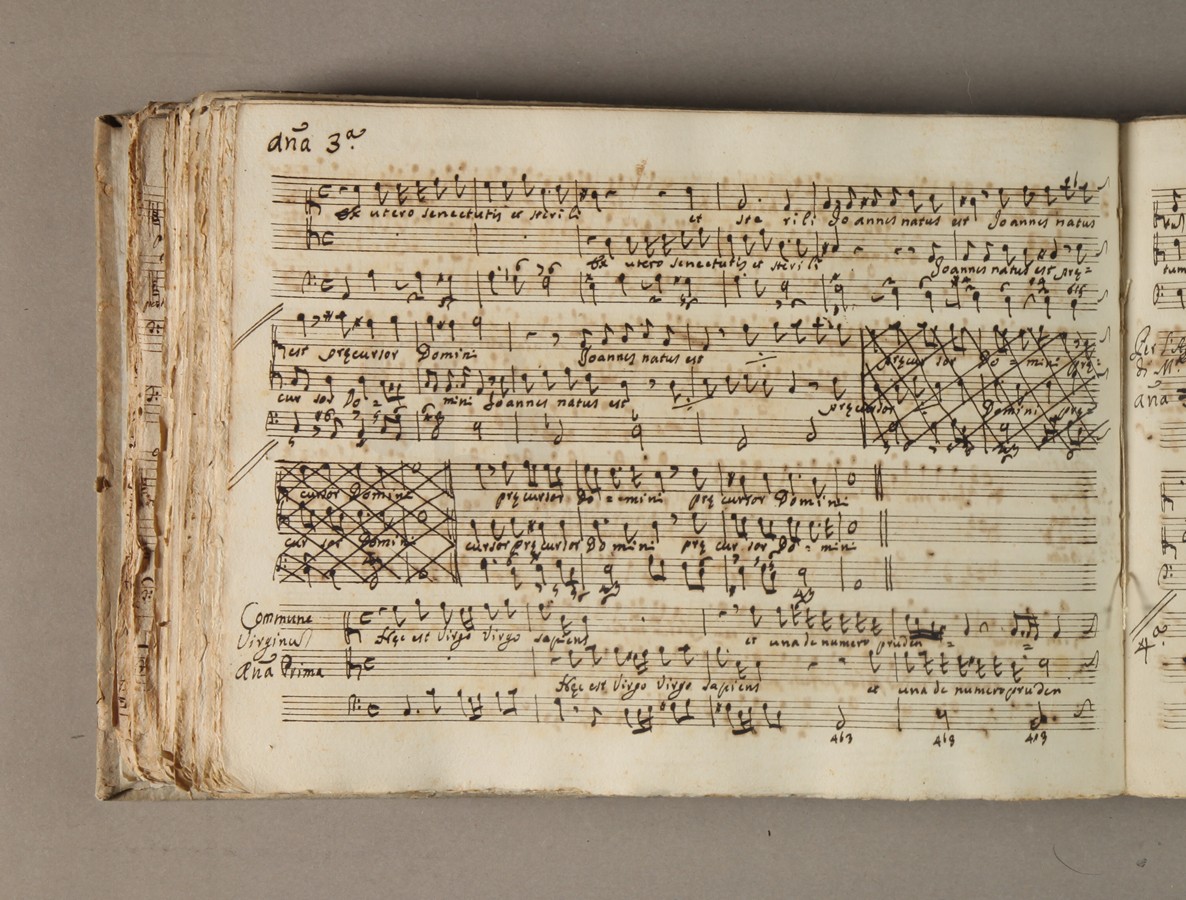 Aña 3.ª
Ex utero senectutis et sterili et ste rili Joannes natus est Joannes natus
Ex utero senectutis et sterili Joannes natus est prę=
est pręcursor Domini Joannes natus est pręcursor Do = mini prę=
cur sor Do = mini Joannes natus est pręcursor Domini prę=
cursor Domini pręcursor Do = mini prę cursor Domini
cur sor Domini cursor pręcursor Do mini prę cur sor Do = mini
Commune
Virginum
Aña Prima
Hęc est Virgo Virgo sapiens et una de numero pruden =
Hęc est Virgo Virgo sapiens et una de numero pruden
463
tum
Aña
4.ª